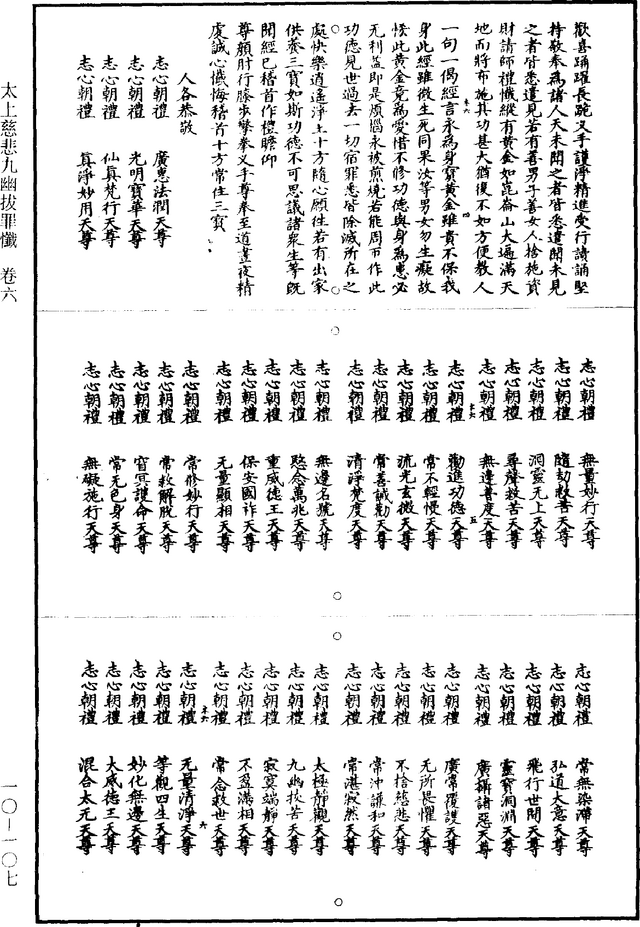 歡喜踊躍長跪叉手護淨精進受行讀誦堅
持敬奉為諸人天未聞之者皆悉遣聞未見
之者皆悉遣見若有善男子善女人捨施資
財請師禮懺縱有黃金如崑崙山大遍滿天
地而將布施其功甚大猶復不如方便教人
一句一偈經言永為身寶黃金雖貴不保我
身此經雖微生死同果汝等男女勿生癡故
惜此黃金竟為愛惜不修功德與身為患必
无利益即是煩惱永被煎燒若能周帀作此
功德見世過去一切宿罪悉皆除滅所在之
處快樂逍遙淨土十方隨心願往若有出家
供養三寶如斯功德不可思議諸衆生等既
聞經已稽首作禮瞻仰
尊顏肘行膝步擎拳叉手尊奉至道晝夜精
虔誠心懺悔稽首十方常住三寶
人各恭敬
志心朝禮 廣惠法潤天尊
志心朝禮 光明寶華天尊
志心朝禮 仙真梵行天尊
志心朝禮 真淨妙用天尊
志心朝禮 無量妙行天尊
志心朝禮 隨劫救善天尊
志心朝禮 洞靈无上天尊
志心朝禮 尋聲救苦天尊
志心朝禮 無邊善度天尊
志心朝禮 勸進功德天尊
志心朝禮 常不輕慢天尊
志心朝禮 流光玄微天尊
志心朝禮 常喜誠勸天尊
志心朝禮 清淨梵度天尊
志心朝禮 無邊名號天尊
志心朝禮 愍念萬兆天尊
志心朝禮 重威德王天尊
志心朝禮 保安國祚天尊
志心朝禮 无量顯相天尊
志心朝禮 常脩妙行天尊
志心朝禮 常救解脫天尊
志心朝禮 窅冥護命天尊
志心朝禮 常无色身天尊
志心朝禮 無礙施行天尊
志心朝禮 常無染滯天尊
志心朝禮 弘道大意天尊
志心朝禮 飛行世間天尊
志心朝禮 靈寶洞淵天尊
志心朝禮 廣攝諸惡天尊
志心朝禮 廣常覆護天尊
志心朝禮 无所畏懼天尊
志心朝禮 不捨慈悲天尊
志心朝禮 常沖謙和天尊
志心朝禮 常湛寂然天尊
志心朝禮 太極靜觀天尊
志心朝禮 九幽拔苦天尊
志心朝禮 寂寞端靜天尊
志心朝禮 不盈滿相天尊
志心朝禮 常念救世天尊
志心朝禮 无量清淨天尊
志心朝禮 等觀四生天尊
志心朝禮 妙化無邊天尊
志心朝禮 大威德王天尊
志心朝禮 混合太元天尊
太上慈悲九幽拔罪懺 卷六
一〇—一〇七